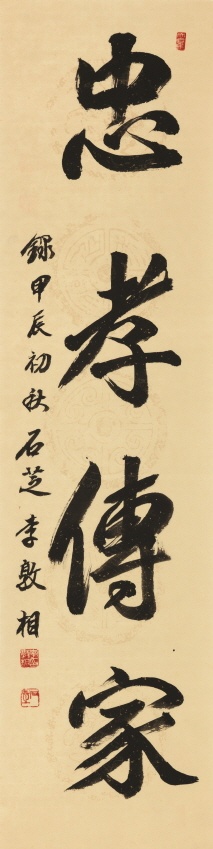 忠孝傳家
錄甲辰初秋石芝李敦相